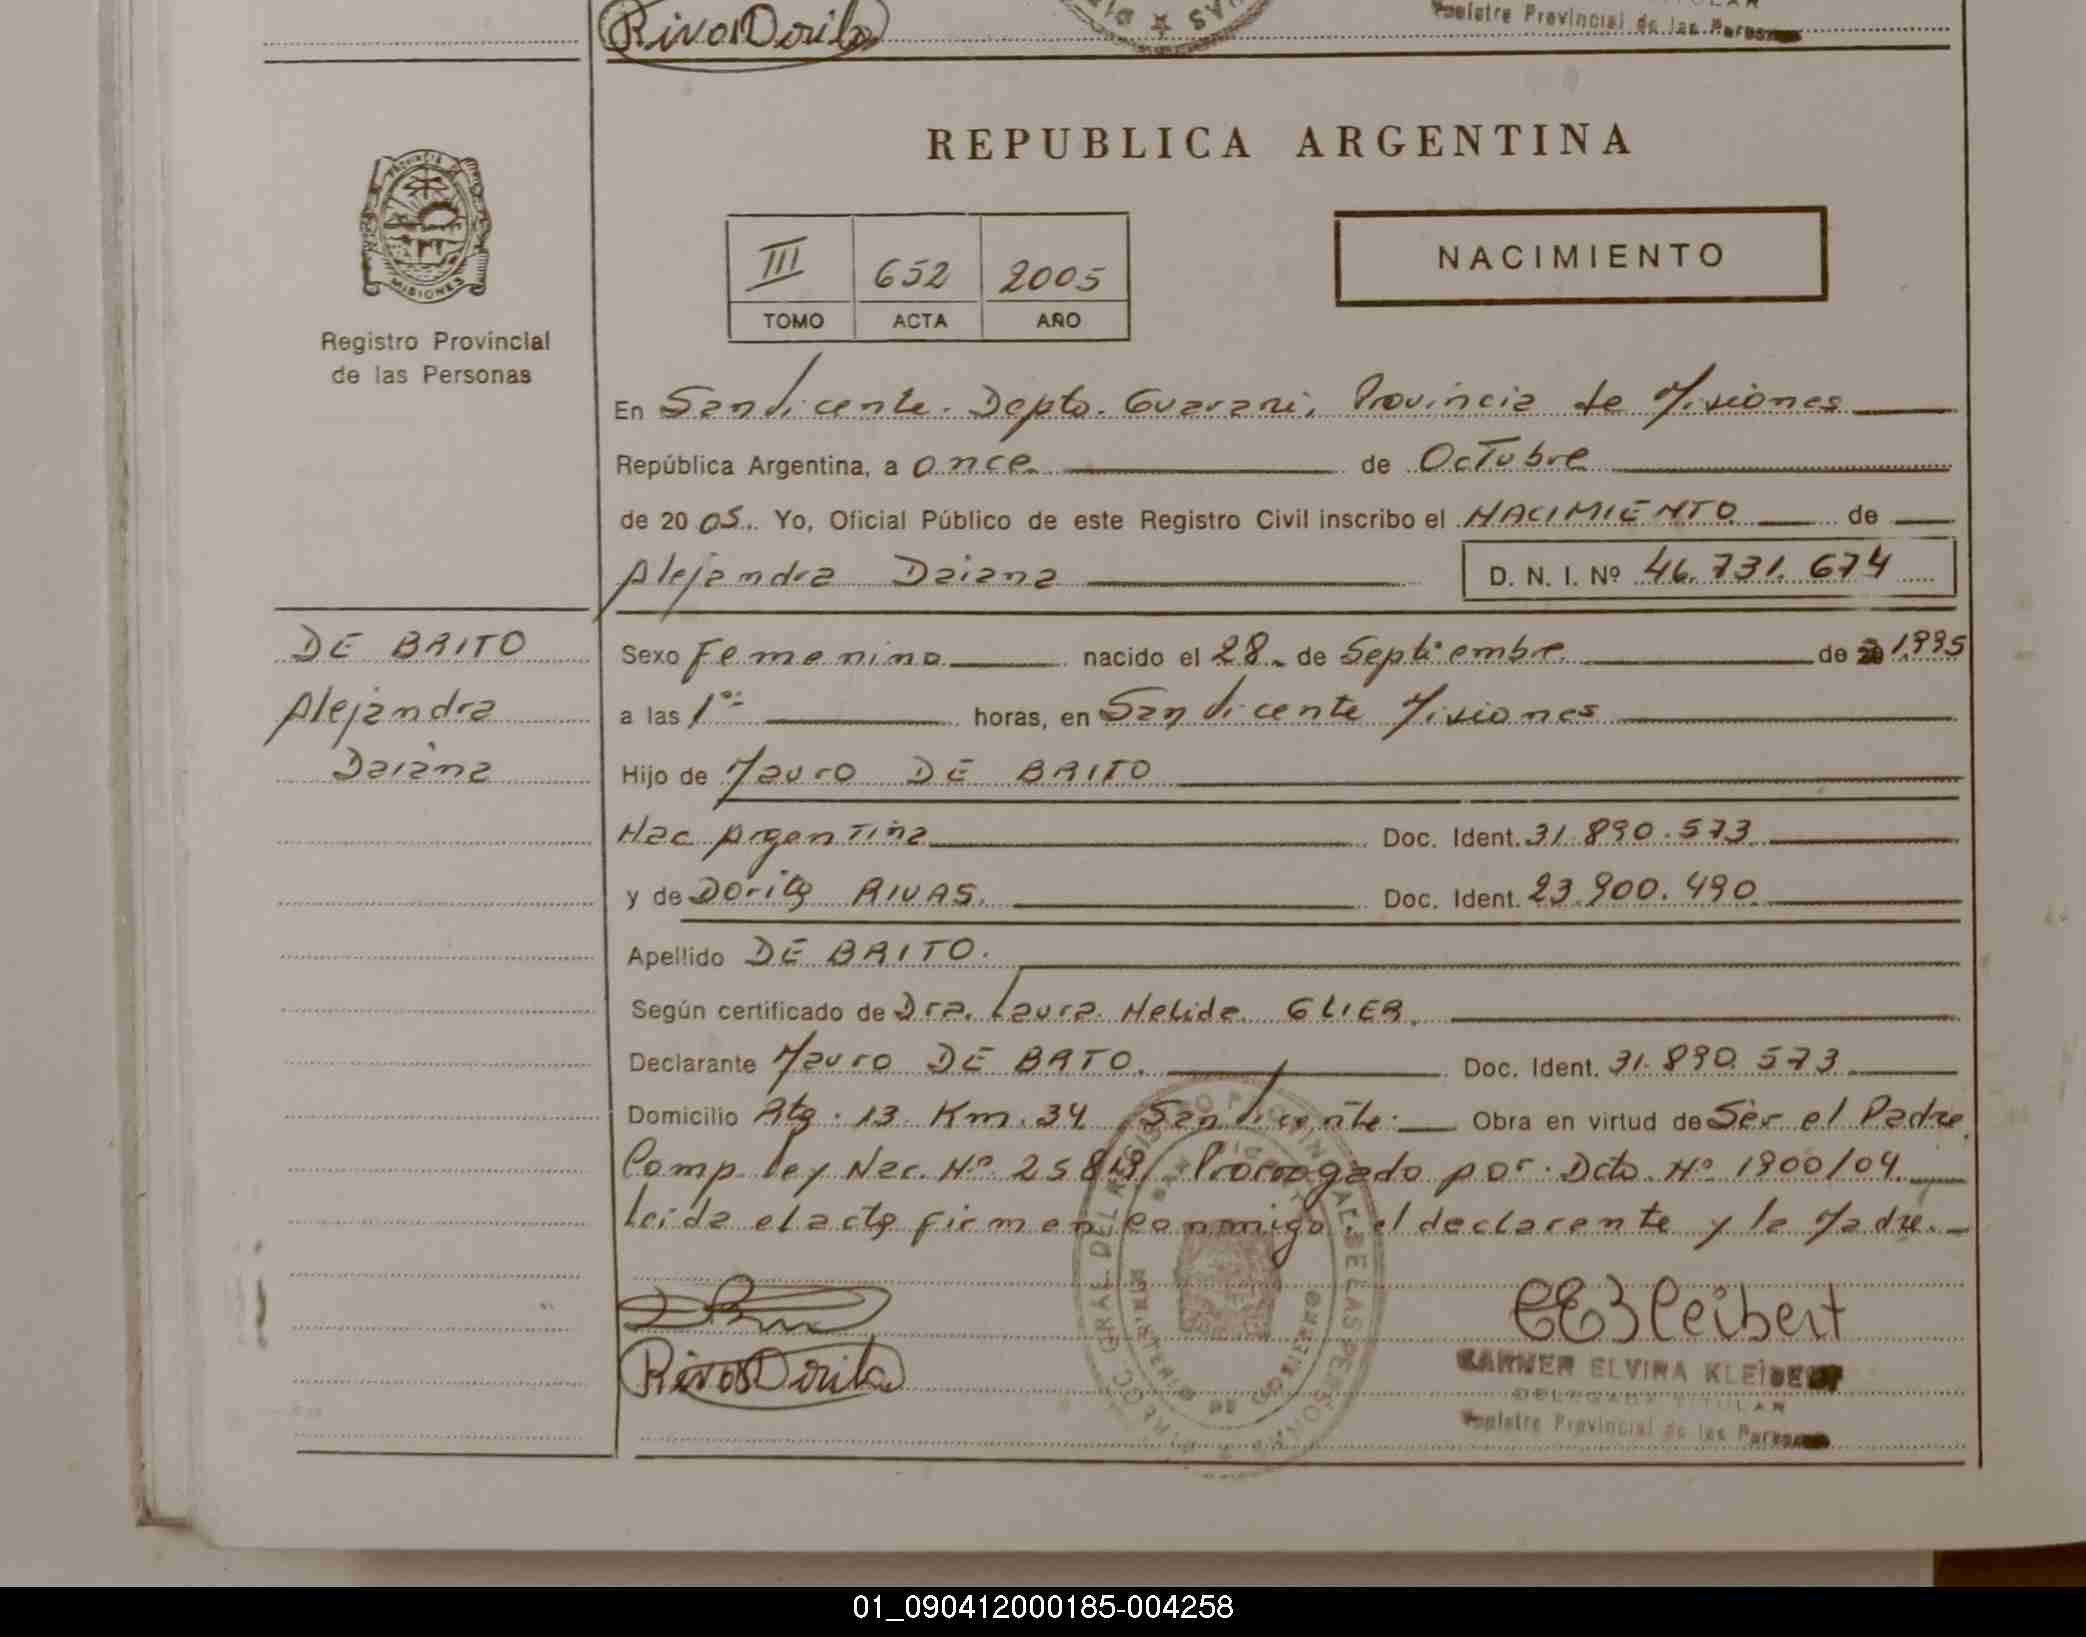 Rivas Dorila
Registro Provincial de las Personas
REPUBLICA ARGENTINA
MISIONES
Registro Provincial
de las Personas
III 652 2005
TOMO ACTA AÑO
NACIMIENTO
En San Vicente. Depto. Guarani, Provincia de Misiones
República Argentina, a once de Octubre
de 2005. Yo, Oficial Público de este Registro Civil inscribo el NACIMIENTO de
Alejandra Daiana D. N. I. Nº 46.731.674
DE BRITO
Alejandra
Daiana
Sexo Femenino nacido el 28 de Septiembre de 1995
a las 1 horas, en San Vicente Misiones
Hijo de Mauro DE BRITO
Nac Argentina Doc. Ident. 31.890.573
y de Dorila RIVAS. Doc. Ident. 23.900.490
Apellido DE BRITO.
Según certificado de Dra. Laura Nelida GLIER.
Declarante Mauro DE BRTO. Doc. Ident. 31.890.573
Domicilio Rta. 13 Km. 34 San Vicente. Obra en virtud de Ser el Padre
Comp. Ley Nac. Nº 25819 Prorrogado por Dcto. Nº 1900/04.
Leida el acta firman conmigo el declarante y la Madre.
Rivas Dorila
CEKleibert
CARMEN ELVIRA KLEIBERT
DELEGADA TITULAR
Registro Provincial de las Personas
01_090412000185-004258